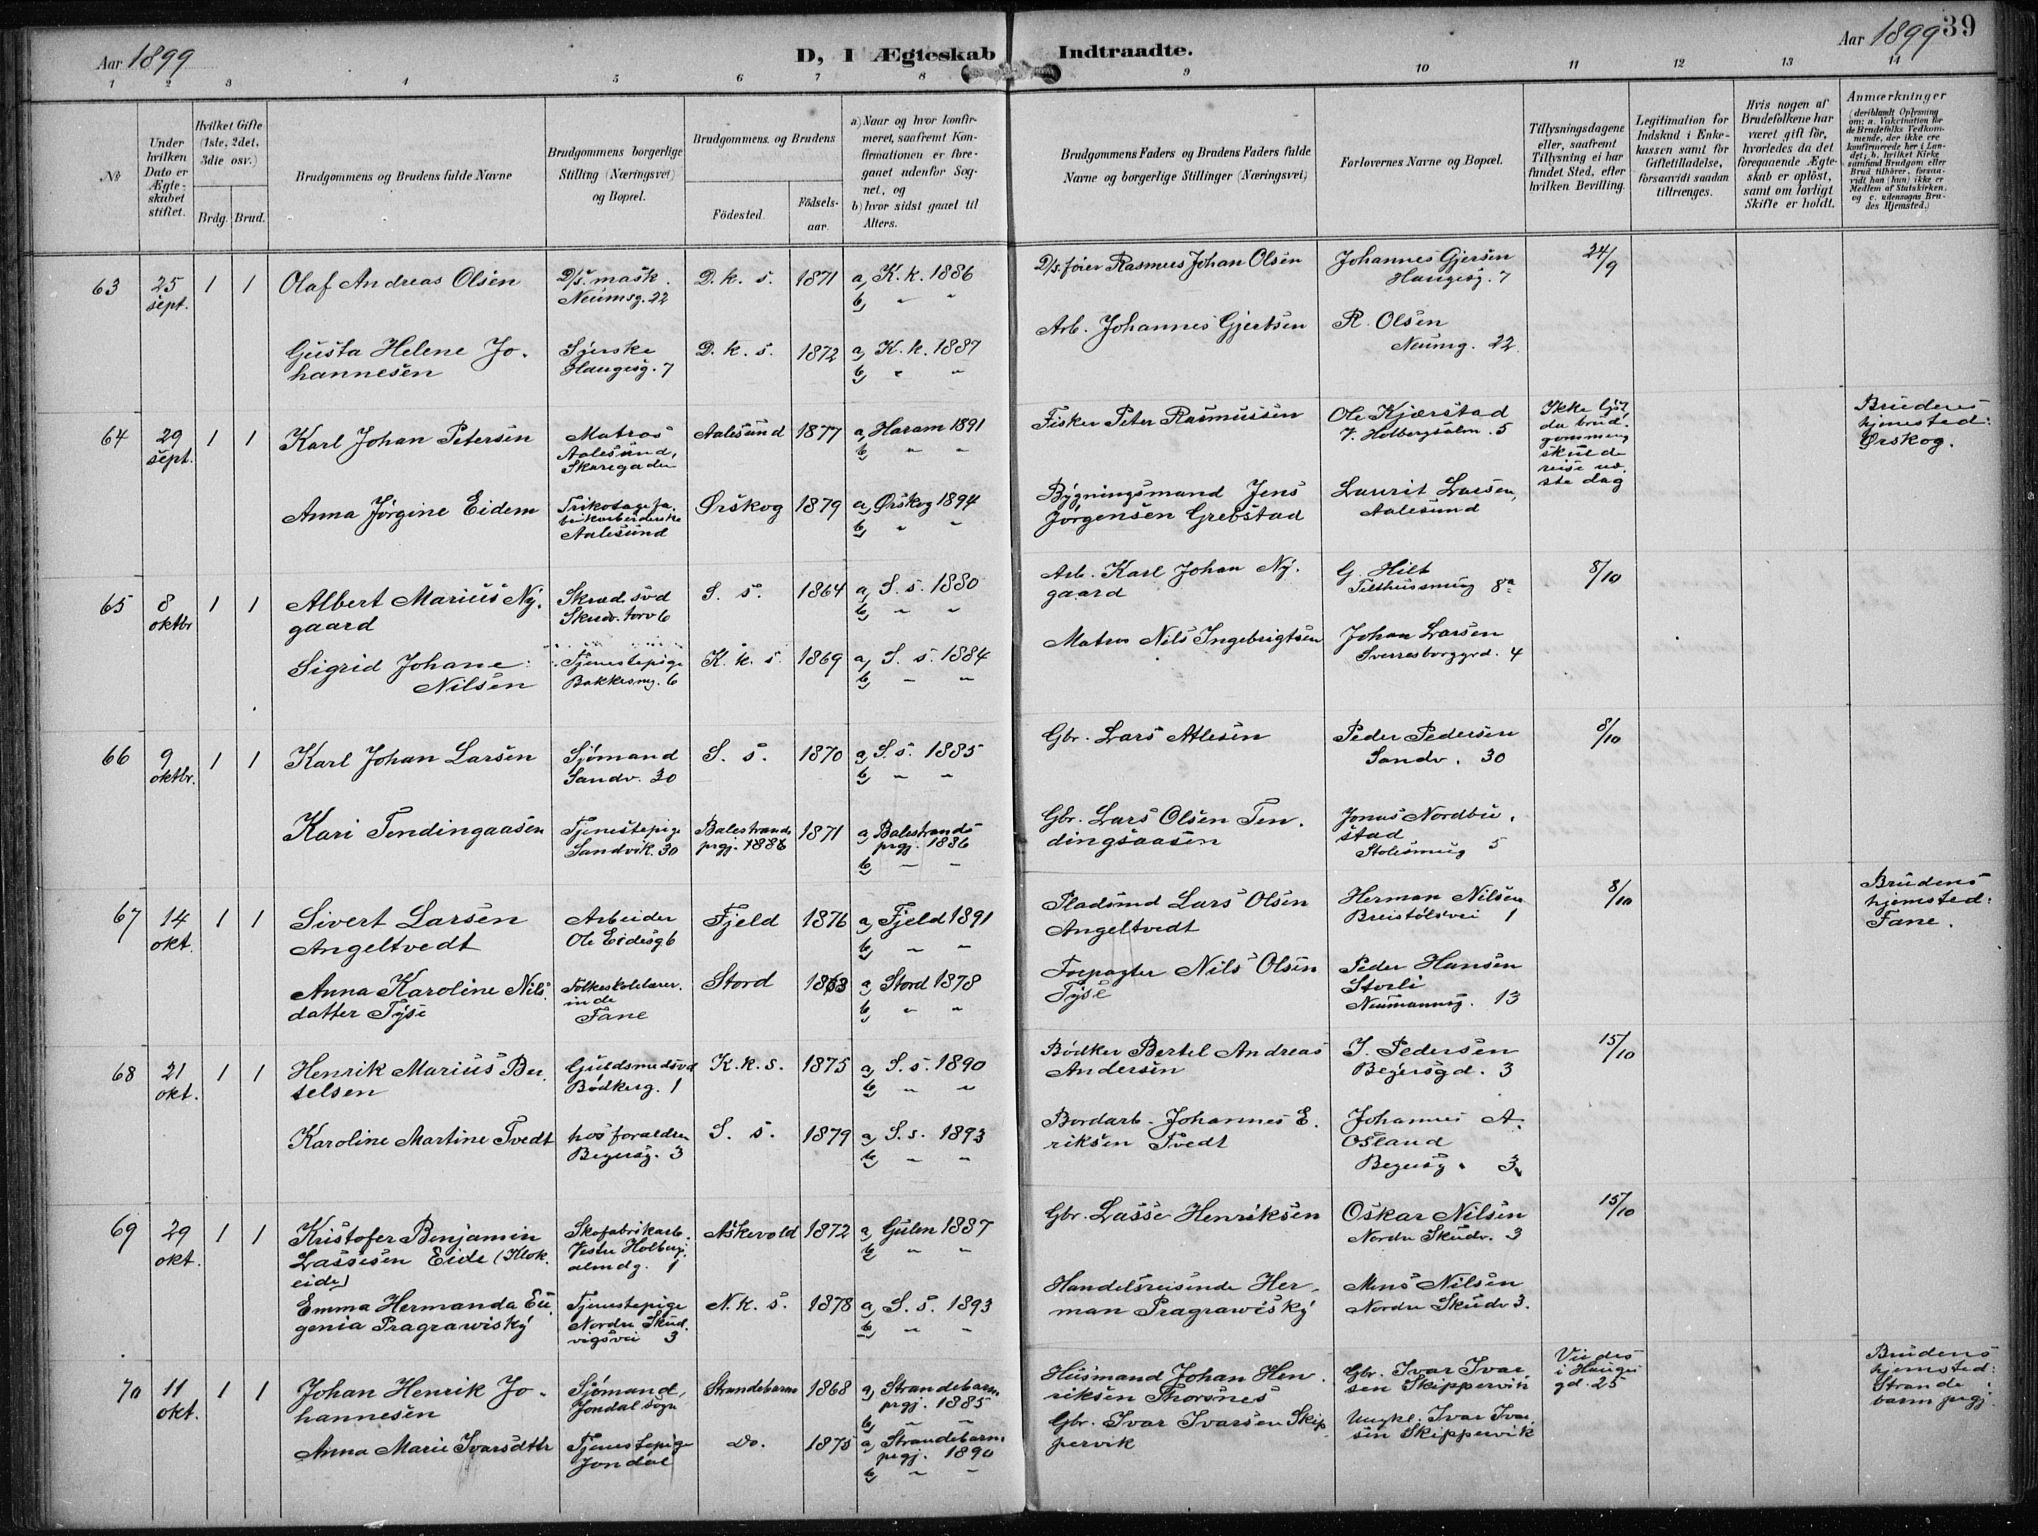 Aar 1899
D, I Ægteskab Indtraadte.
Aar 1899 39
1 2 3 4 5 6 7 8 9 10 11 12 13 14
Nr
Under
hvilken
Dato er
Ægte-
skabet
stiftet.
Hvilket Gifte
(1ste, 2det,
3die osv.)
Brdg. Brud.
Brudgommens og Brudens fulde Navne
Brudgommens borgerlige
Stilling (Næringsvei)
og Bopæl.
Brudgommens og Brudens
Fødested.
Fødsels-
aar.
a) Naar og hvor konfir-
meret, saafremt Kon-
firmationen er fore-
gaaet udenfor Sog-
net, og
b) hvor sidst gaaet til
Alters.
Brudgommens Faders og Brudens Faders fulde
Navne og borgerlige Stillinger (Næringsvei)
Forlovernes Navne og Bopæl.
Tillysningsdagene
eller, saafremt
Tillysning ei har
fundet Sted, efter
hvilken Bevilling.
Legitimation for
Indskud i Enke-
kassen samt for
Giftetilladelse,
forsaavidt saadan
tiltrænges.
Hvis nogen af
Brudefolkene har
været gift før,
hvorledes da det
foregaaende Ægte-
skab er opløst,
samt om lovligt
Skifte er holdt.
Anmærkninger
(deriblandt Oplysning
om: a. Vakcination for
de Brudefolks Vedkom-
mende, der ikke ere
konfirmerede her i Lan-
det; b. hvilket Kirke
samfund Brudgom eller
Brud tilhører, forsaa-
vidt han (hun) ikke er
Medlem af Statskirken,
og c. udensogns Bru-
des Hjemsted.)
63 25 sept. 1 1 Olaf Andreas Olsen
D/s. mask.
Neumsg. 22
D. k. s. 1871 a, K. k. 1886
b, " "
D/s. føier Rasmus Johan Olsen
Johannes Gjersen
Haugesg. 7
24/9
Gusta Helene Jo-
hannesen
Syerske
Haugesg. 7
D. k. s. 1872 a, K. k. 1887
b, " "
Arb. Johannes Gjertsen
R. Olsen
Neumg. 22
64 29 sept. 1 1 Karl Johan Petersen
Matros
Aalesund,
Skaregaden
Aalesund 1877 a, Haram 1891
b, " "
Fisker Peter Rasmussen
Ole Kjærstad
V. Holbergsalm. 5
Ikke lyst
da brud-
gommen
skulde
reise næ-
ste dag
Brudens
hjemsted:
Ørskog.
Anna Jørgine Eidem
Trikotagefa-
brikarbeiderske
Aalesund
Ørskog 1879 a, Ørskog 1894
b, " "
Bygningsmand Jens
Jørgensen Grebstad
Laurit Larsen,
Aalesund
65 8 oktbr 1 1 Albert Marius Ny-
gaard
Skræd.svd
Skudv. torv 6
S. s. 1864 a, S. s. 1880
b, " "
Arb. Karl Johan Ny-
gaard
G. Hilt
Telthussmug 8a
8/10
Sigrid Johane
Nilsen
Tjenestepige
Bakkesmg. 6
K. k. s. 1869 a, S. s. 1884
b, " "
Matros Nils Ingebrigtsen
Johan Larsen
Sverresborggrd. 4
66 9 oktbr. 1 1 Karl Johan Larsen
Sjømand
Sandv. 30
S. s. 1870 a, S. s. 1885
b, " "
Gbr. Lars Atlesen
Peder Pedersen
Sandv. 30
8/10
Kari Tendingaasen
Tjenestepige
Sandvik. 30
Balestrands
prgj. 1886
1871 a, Balestrands
prgj. 1886
b, " "
Gbr. Lars Olsen Ten-
dingsaasen
Jonas Nordbu-
stad
Stolesmug 5
67 14 okt. 1 1 Sivert Larsen
Angeltvedt
Arbeider
Ole Eidesg 6
Fjeld 1876 a, Fjeld 1891
b, " "
Pladsmd Lars Olsen
Angeltvedt
Herman Nilsen
Breistølsvei 1
8/10
Brudens
hjemsted:
Fane.
Anna Karoline Nils-
datter Tyse
Folkeskolelærer-
inde
Fane
Stord 1863 a, Stord 1878
b, " "
Forpagter Nils Olsen
Tyse
Peder Hansen
Storli
Neumannsg. 13
68 21 okt. 1 1 Henrik Marius Ber-
telsen
Guldsmedsvd
Bødkerg. 1
K. k. s. 1875 a, S. s. 1890
b, " "
Bødker Bertel Andreas
Andersen
J. Pedersen
Beyersgd. 3
15/10
Karoline Martine Tvedt
hos foraldre
Beyersg. 3
S. s. 1879 a, S. s. 1893
b, " "
Bordarb. Johannes E-
riksen Tvedt
Johannes A.
Osland
Beyersg. 3
69 29 okt. 1 1 Kristofer Benjamin
Lassesen Eide (Klok-
eide)
Skofabrikarb.
Vestre Holberg-
almdg. 1
Askevold 1872 a, Gulen 1887
b, " "
Gbr. Lasse Henriksen
Oskar Nilsen
Nordre Skudv. 3
15/10
Emma Hermanda Eu-
genia Pragrawisky
Tjenestepige
Nordre Skud-
vigsvei 3
N. k. s. 1878 a, S. s. 1893
b, " "
Handelsreisende Her-
man Pragrawisky
Mons Nilsen
Nordre Skudv 3.
70 11 okt. 1 1 Johan Henrik Jo-
hannesen
Sjømand,
Jondal sogn
Strandebarm 1868 a, Strandebarm
prgj. 1885
b, " "
Husmand Johan Hen-
riksen Thorsnes
Gbr. Ivar Ivar-
sen Skippervik
Viedes
i Hauges
gd. 25
Brudens
hjemsted:
Strande-
barm prgj.
Anna Marie Ivarsdtter
Tjenestepige
Jondal
Do. 1875 a, Strandebarm
prgj. 1890
b, " "
Gbr. Ivar Ivarsen Skip-
pervik
Ungkl. Ivar Ivar-
sen Skippervik